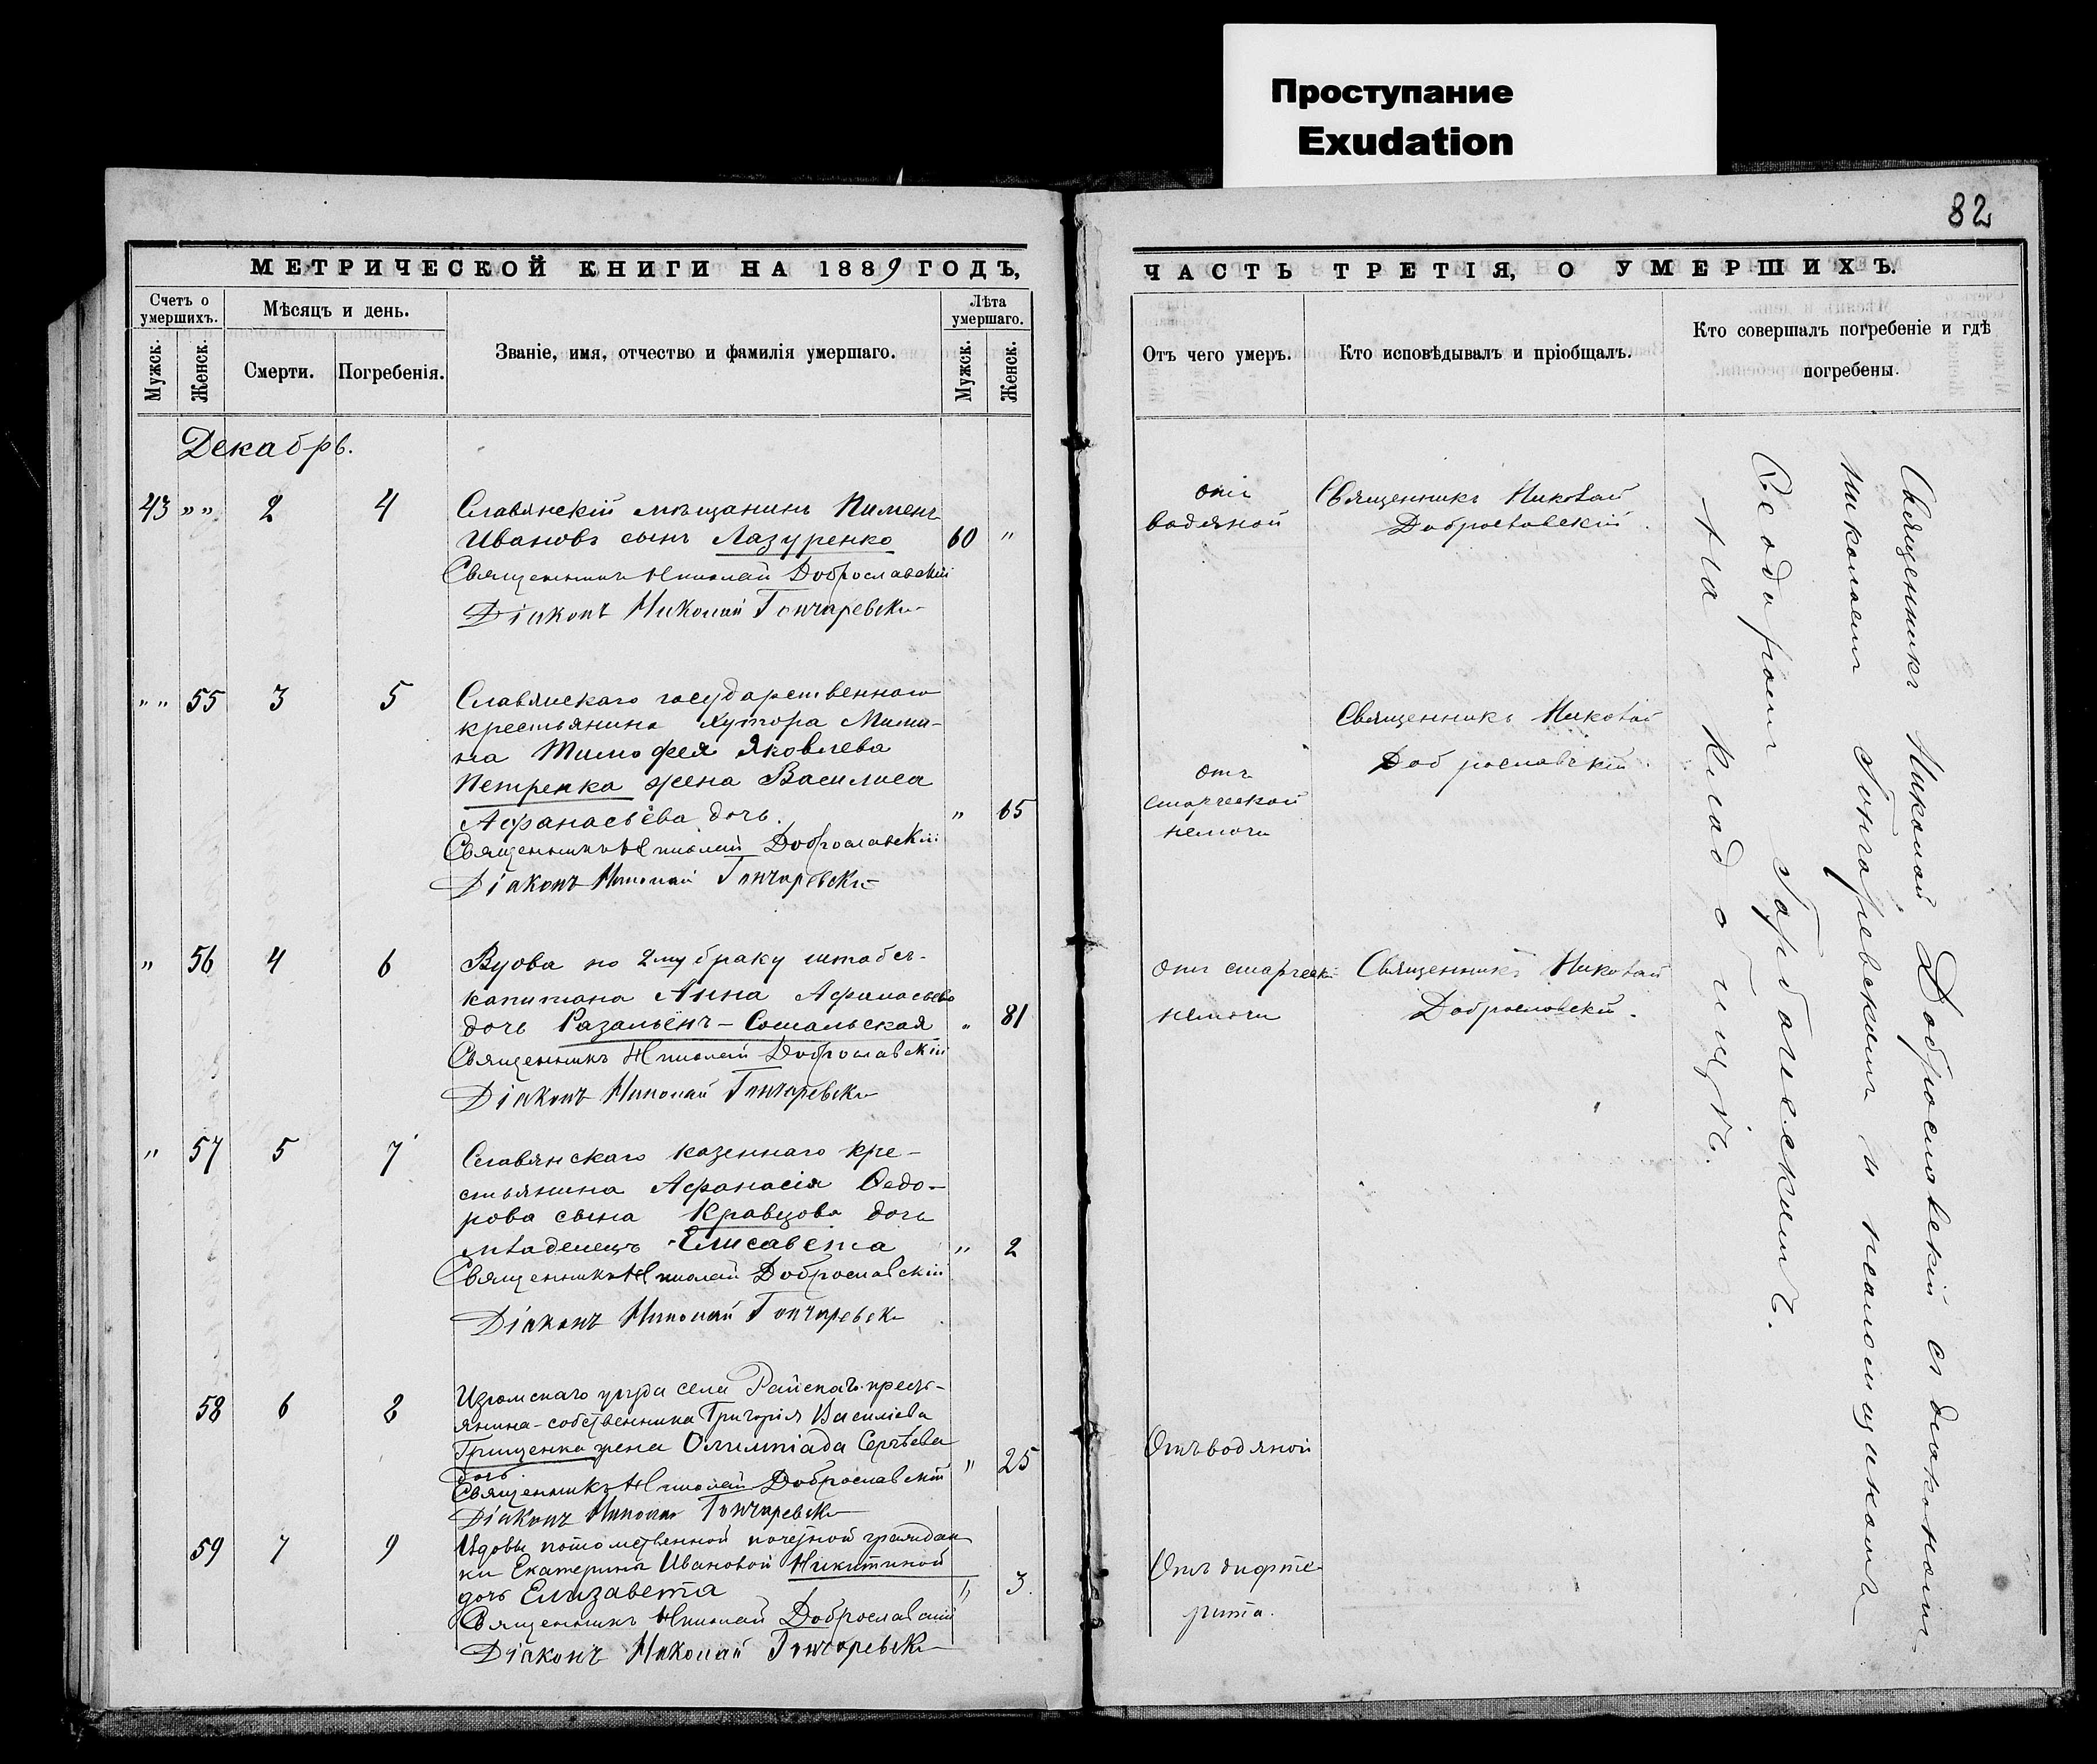 Проступание
Exudation
82
МЕТРИЧЕСКОЙ КНИГИ НА 1889 ГОДЪ,
Счетъ о умершихъ.
Мужск.
Женск.
Мѣсяцъ и день.
Смерти.
Погребенія.
Званіе, имя, отчество и фамилія умершаго.
Лѣта умершаго.
Мужск.
Женск.
Декабрь.
43 „ „ 2 4
Славянскій мѣщанинъ Пименъ
Ивановъ сынъ Лазуренко 60 „
Священникъ Николай Доброславскій
Діаконъ Николай Гончаревскі
„ „ 55 3 5
Славянскаго государственнаго
крестьянина хутора
на Тимофея Яковлева
Петренка жена Василиса
Афанасьева дочь. „ 65
Священникъ Николай Доброславскій
Діаконъ Николай Гончаревскі
„ 56 4 6
Вдова по 2му браку штабсъ-
капитана Анна Афанасьева
дочь Разальенъ-Сошальская „ 81
Священникъ Николай Доброславскій
Діаконъ Николай Гончаревскі
„ 57 5 7
Славянскаго казеннаго кре-
стьянина Афанасія Ѳедо-
рова сына Кравцова дочь
младенецъ Елисавета „ 2
Священникъ Николай Доброславскій
Діаконъ Николай Гончаревск
58 6 8
Изюмскаго уѣзда села Райскаго кресть-
янина-собственника Григорія Василіева
Грищенка жена Олимпіада Сергѣева
дочь. „ 25
Священникъ Николай Доброславскій
Діаконъ Николай Гончаревск
59 7 9
Вдовы потомственной почетной граждан
ки Екатерины Ивановой Никитиной
дочь Елизавета „ 3.
Священникъ Николай Доброславскій
Діаконъ Николай Гончаревск
ЧАСТЬ ТРЕТІЯ, О УМЕРШИХЪ.
Отъ чего умеръ.
Кто исповѣдывалъ и пріобщалъ.
Кто совершалъ погребеніе и гдѣ
погребены.
отъ
водяной
Священникъ Николай
Доброславскій.
отъ
старческой
немочи
Священникъ Николай
Доброславскій
отъ старческ
немочи
Священникъ Николай
Доброславскій.
Отъ водяной
Отъ дифте
рита.
Священникъ Николай Доброславскій съ діакономъ
Николаемъ Гончаревскимъ и псаломщикомъ
Ѳеодоромъ Горбачевскимъ.
На кладбищѣ.